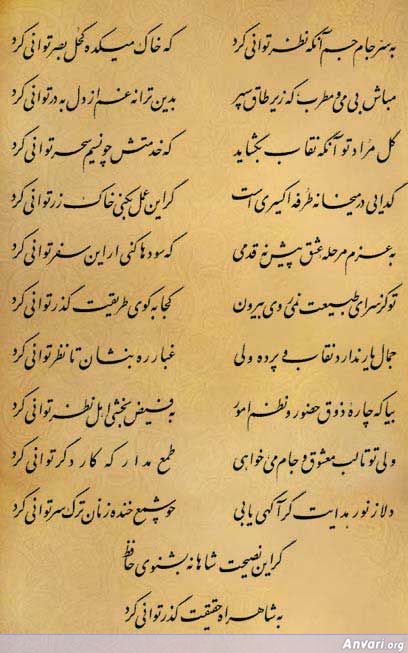 به سر جام جم آنگه نظر توانی کرد که خاک میکده کحل بصر توانی کرد
مباش بی می و مطرب که زیر طاق سپهر بدین ترانه غم از دل به در توانی کرد
گل مراد تو آنگه نقاب بگشاید که خدمتش چو نسیم سحر توانی کرد
گدایی در میخانه طرفه اکسیری است گر این عمل بکنی خاک زر توانی کرد
به عزم مرحله عشق پیش نه قدمی که سودها کنی ار این سفر توانی کرد
تو کز سرای طبیعت نمی‌روی بیرون کجا به کوی طریقت گذر توانی کرد
جمال یار ندارد نقاب و پرده ولی غبار ره بنشان تا نظر توانی کرد
بیا که چاره ذوق حضور و نظم امور به فیض بخشی اهل نظر توانی کرد
ولی تو تا لب معشوق و جام می خواهی طمع مدار که کار دگر توانی کرد
دلا ز نور هدایت گر آگهی یابی چو شمع خنده زنان ترک سر توانی کرد
گر این نصیحت شاهانه بشنوی حافظ
به شاهراه حقیقت گذر توانی کرد
Anvari.org